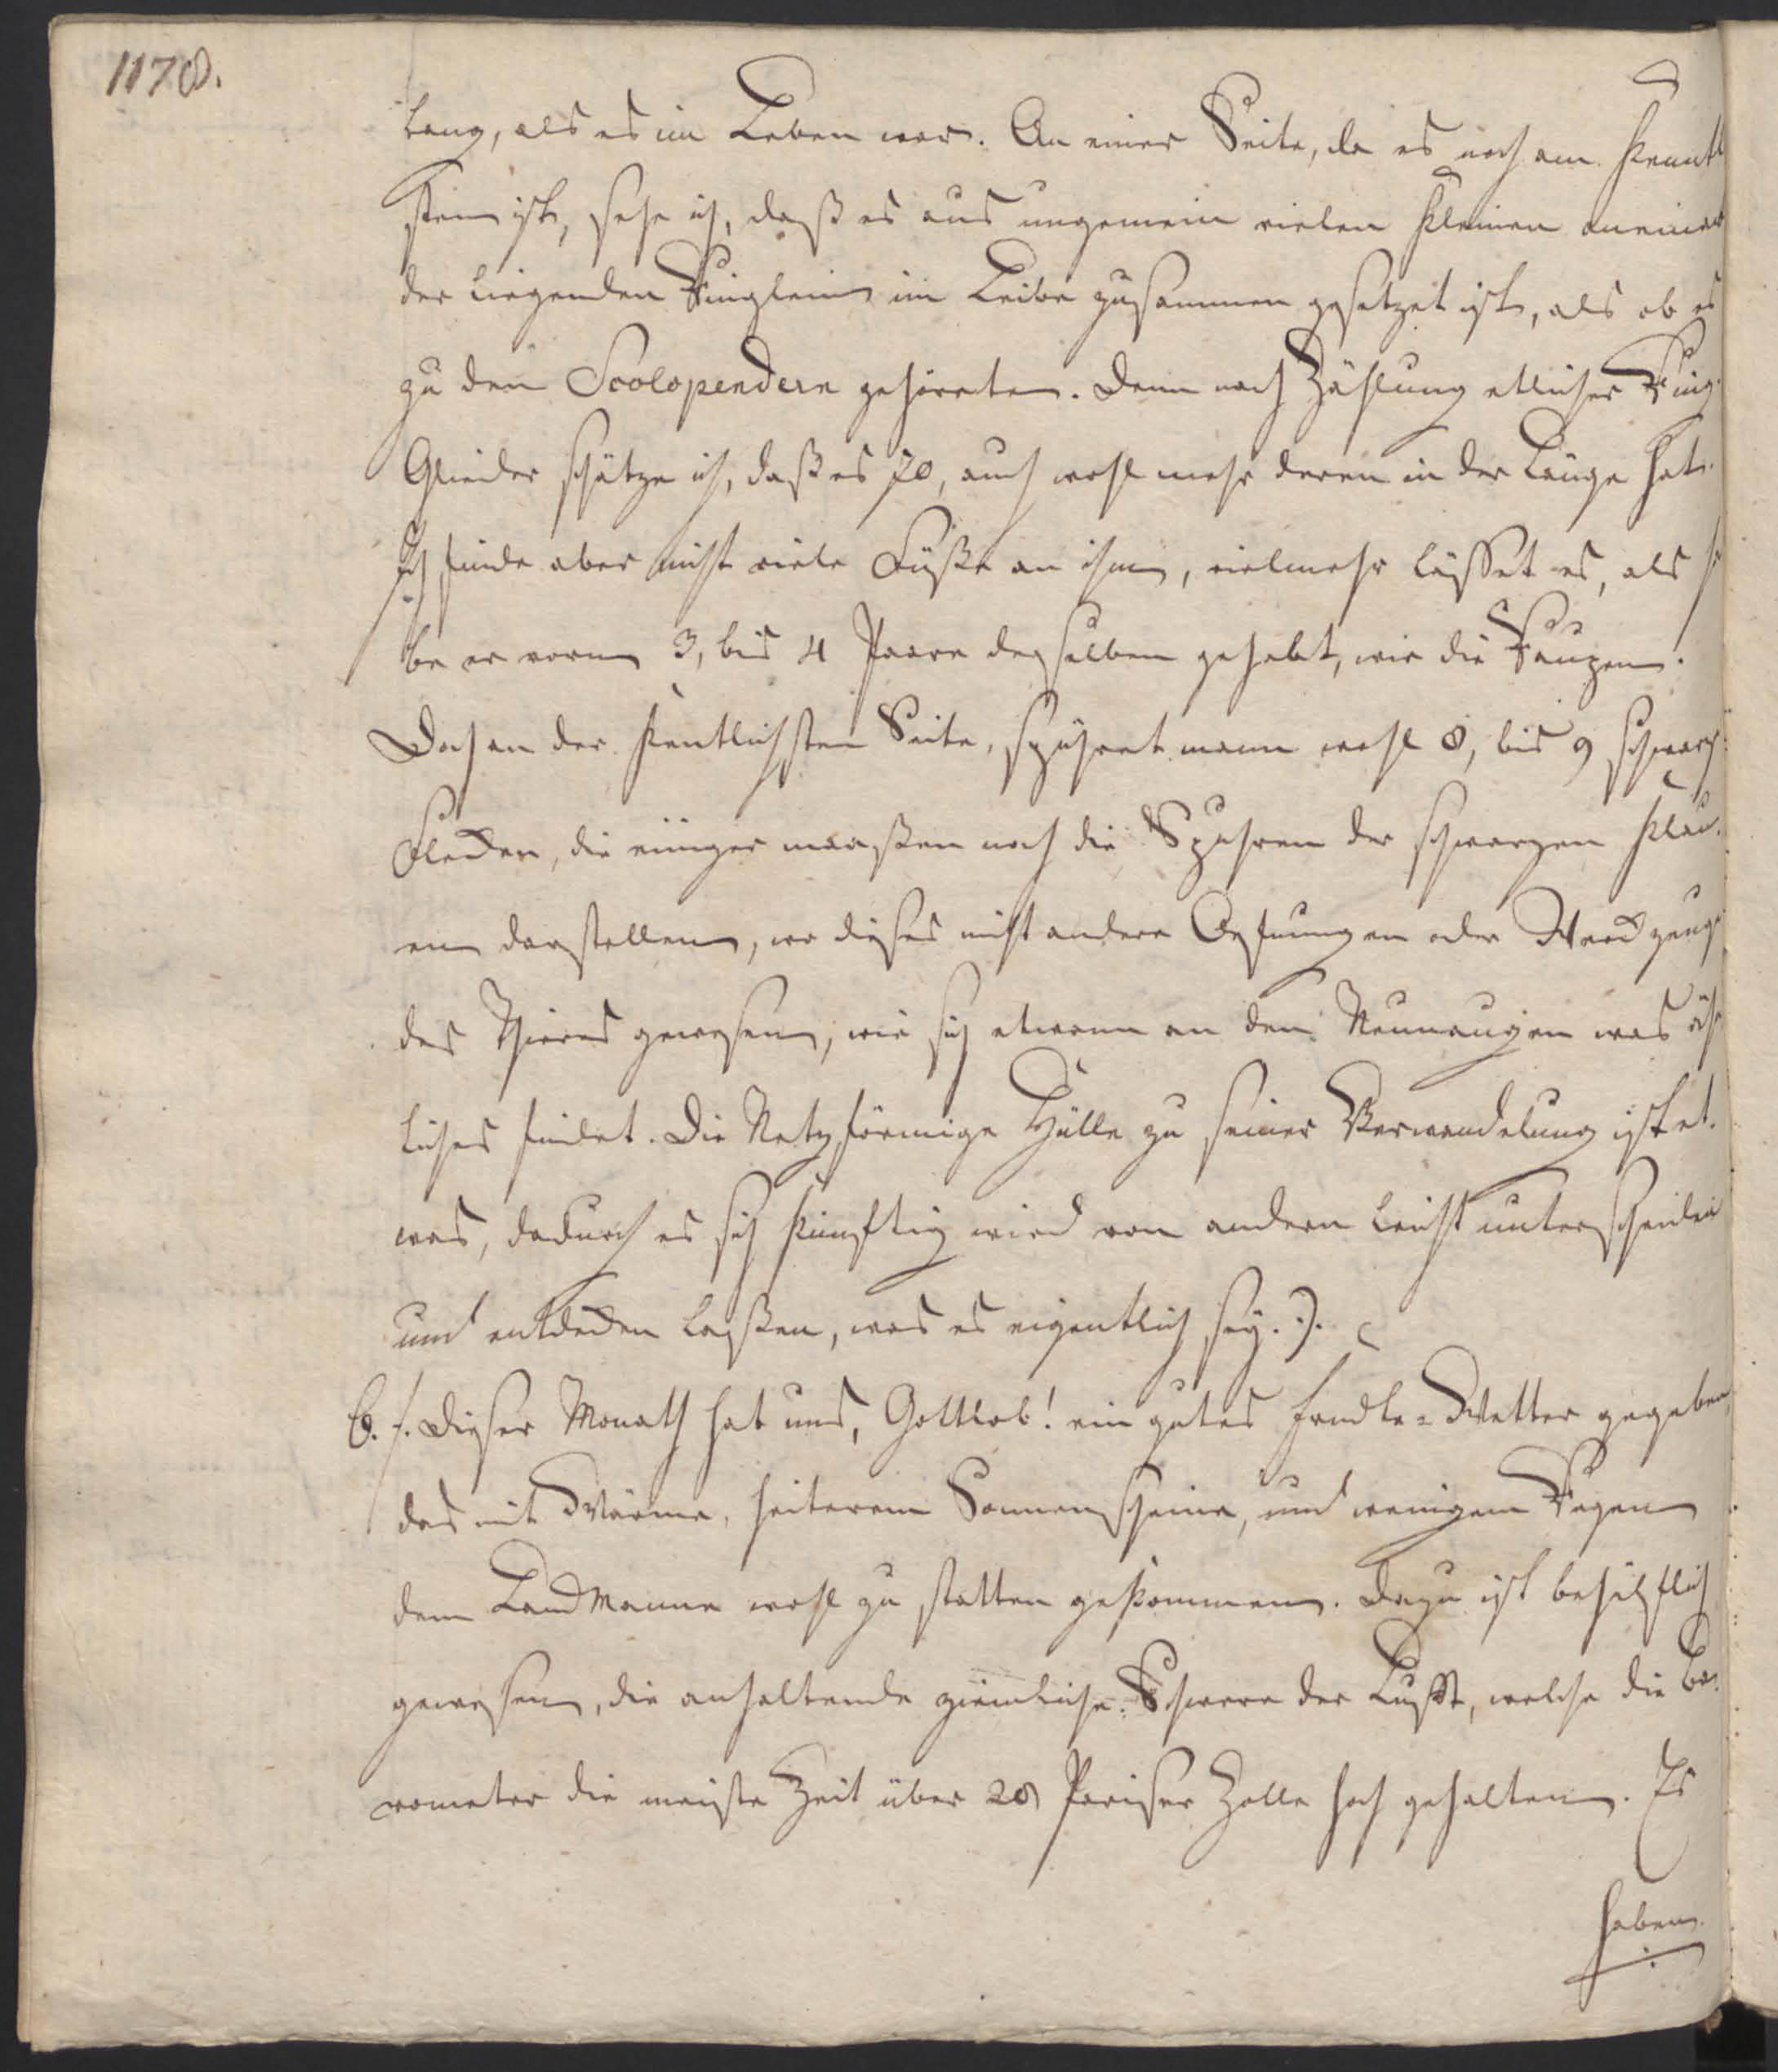 1178.
lang, als es im Leben war. An einer Seite, da es noch am kentl
sten ist, sehe ich, daß es aus ungemein vielen kleinen aneinan
der liegenden Ringlein im Leibe zusammen gesetzet ist, als ob es
zu den Scolopendern gehöreten. Denn nach Zählung etlicher Ring
Glieder schätze ich, daß es 70, auch wohl mehr deren in der Länge hat.
Ich finde aber nicht viele Füße an ihm, vielmehr lässet es, als ha
be er vorn 3, bis 4 Paare derselben gehabt, wie die Raupen.
Doch an der kentlichsten Seite, spühret mann wohl 8, bis 9 schwarze
Flecken, die einiger maaßen noch die Spuhren der schwarzen Klau
en darstellen, wo dieses nicht andere Oefnungen oder Werckzeuge
des Thieres gewesen, wie sich etwann an den Neunaugen was ähn
liches findet. Die Netzförmige Hülle zu seiner Verwandelung ist et
was, dadurch es sich künftig wird von andern leicht unterscheiden
und entdecken laßen, was es eigentlich sey. :).
C. f. Dieser Monath hat uns, Gottlob! ein gutes Erndte-Wetter gegeben,
das mit Wärme, heiterem Sonnenscheine, und wenigem Regen
dem LandManne wohl zu statten gekommen. Dazu ist behülflich
gewesen, die anhaltende ziemliche Schwere der Lufft, welche die Ba
rometer die meiste Zeit über 28 Pariser Zolle hoch gehalten. Es
haben